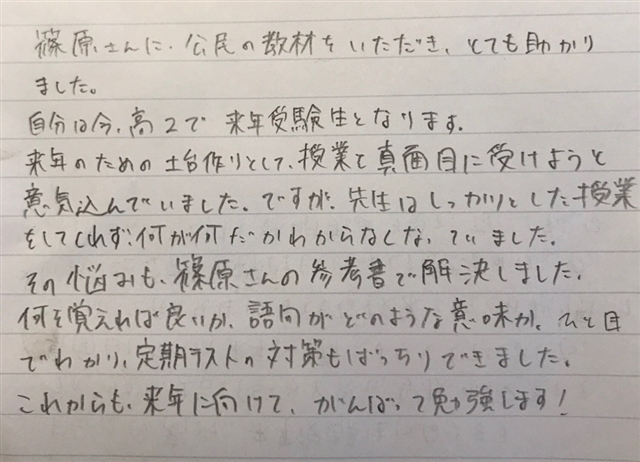 篠原さんに、公民の教材をいただき、とても助かり
ました。
自分は今、高2で来年受験生となります。
来年のための土台作りとして、授業を真面目に受けようと
意気込んでいました。ですが、先生はしっかりとした授業
をしてくれず、何が何だかわからなくなっていました。
その悩みも、篠原さんの参考書で解決しました。
何を覚えれば良いか、語句がどのような意味か、ひと目
でわかり、定期テストの対策もばっちりできました。
これからも、来年に向けて、がんばって勉強します!